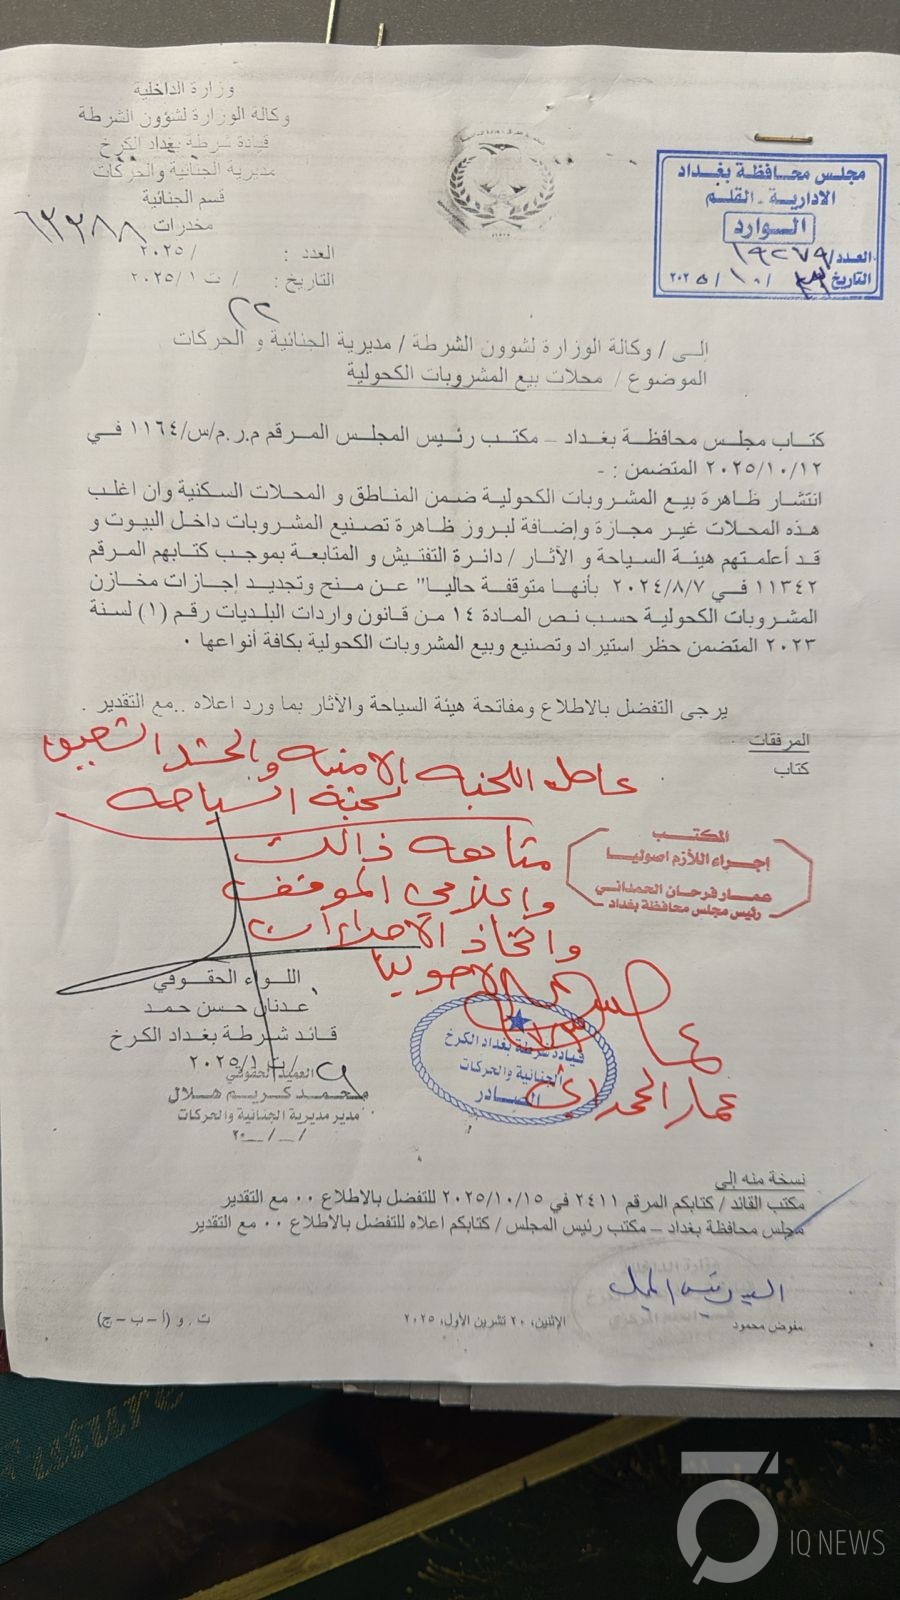 وزارة الداخلية
وكالة الوزارة لشؤون الشرطة
قيادة شرطة بغداد الكرخ
مديرية الجنائية والحركات
قسم الجنائية
مخدرات ٦٢٣٨٨
العدد : / ٢٠٢٥
التاريخ : / ت ٢٠٢٥/١
٢٢
مجلس محافظة بغداد
الادارية - القلم
الوارد
العدد/ ١٩٢٧٩
التاريخ / ١٠ / ٢٠٢٥
إلى / وكالة الوزارة لشوون الشرطة / مديرية الجنائية و الحركات
الموضوع / محلات بيع المشروبات الكحولية
كتاب مجلس محافظة بغداد – مكتب رئيس المجلس المرقم م.ر.م/س/١١٦٤ في
٢٠٢٥/١٠/١٢ المتضمن : -
انتشار ظاهرة بيع المشروبات الكحولية ضمن المناطق و المحلات السكنية وان اغلب
هذه المحلات غير مجازة وإضافة لبروز ظاهرة تصنيع المشروبات داخل البيوت و
قد أعلمتهم هيئة السياحة و الآثار / دائرة التفتيش و المتابعة بموجب كتابهم المرقم
١١٣٤٢ في ٢٠٢٤/٨/٧ بأنها متوقفة حاليا" عن منح وتجديد إجازات مخازن
المشروبات الكحولية حسب نص المادة ١٤ من قانون واردات البلديات رقم (١) لسنة
٢٠٢٣ المتضمن حظر استيراد وتصنيع وبيع المشروبات الكحولية بكافة أنواعها ٠
يرجى التفضل بالاطلاع ومفاتحة هيئة السياحة والآثار بما ورد اعلاه ..مع التقدير .
المرفقات
كتاب
اللجنة الامنيه والحشد الشعبي
لجنة السياحه
متابعه ذالك
واعلامي الموقف
واتخاذ الاجراءات
الاصوليا
عمار الحمداني
المكتب
إجراء اللازم اصوليا
عمار فرحان الحمداني
رئيس مجلس محافظة بغداد
اللواء الحقوقي
عدنان حسن حمد
قائد شرطة بغداد الكرخ
/ ت ٢٠٢٥/١
العميد الحقوقي
محمد كريم هلال
مدير مديرية الجنائية والحركات
٢٠__/__/
قيادة شرطة بغداد الكرخ
الجنائية والحركات
الصادر
نسخة منه إلى
مكتب القائد / كتابكم المرقم ٢٤١١ في ٢٠٢٥/١٠/١٥ للتفضل بالاطلاع ٠٠ مع التقدير
مجلس محافظة بغداد – مكتب رئيس المجلس / كتابكم اعلاه للتفضل بالاطلاع ٠٠ مع التقدير
السيد رئيس المجلس
مفوض محمود
الإثنين، ٢٠ تشرين الأول، ٢٠٢٥
ت . و (أ – ب – ج)
Future
IQ NEWS